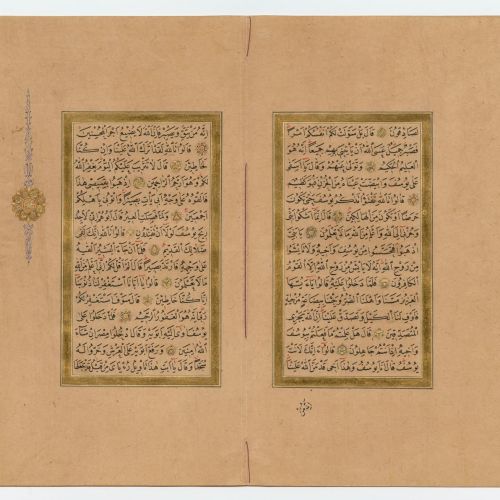 لَصَادِقُونَ قَالَ بَلْ سَوَّلَتْ لَكُمْ اَنْفُسُكُمْ اَمْرًا
فَصَبْرٌ جَمِيلٌ عَسَى اللّٰهُ اَنْ يَاْتِيَنِي بِهِمْ جَمِيعًا اِنَّهُ هُوَ
الْعَلِيمُ الْحَكِيمُ وَتَوَلّٰى عَنْهُمْ وَقَالَ يَا اَسَفٰى
عَلٰى يُوسُفَ وَابْيَضَّتْ عَيْنَاهُ مِنَ الْحُزْنِ فَهُوَ كَظِيمٌ
قَالُوا تَاللّٰهِ تَفْتَؤُا تَذْكُرُ يُوسُفَ حَتّٰى تَكُونَ
حَرَضًا اَوْ تَكُونَ مِنَ الْهَالِكِينَ قَالَ اِنَّمَا اَشْكُوا بَثِّي
وَحُزْنِي اِلَى اللّٰهِ وَاَعْلَمُ مِنَ اللّٰهِ مَا لَا تَعْلَمُونَ يَا بَنِيَّ
اذْهَبُوا فَتَحَسَّسُوا مِنْ يُوسُفَ وَاَخِيهِ وَلَا تَايْئَسُوا
مِنْ رَوْحِ اللّٰهِ اِنَّهُ لَا يَايْئَسُ مِنْ رَوْحِ اللّٰهِ اِلَّا الْقَوْمُ
الْكَافِرُونَ فَلَمَّا دَخَلُوا عَلَيْهِ قَالُوا يَا اَيُّهَا
الْعَزِيزُ مَسَّنَا وَاَهْلَنَا الضُّرُّ وَجِئْنَا بِبِضَاعَةٍ مُزْجٰيةٍ
فَاَوْفِ لَنَا الْكَيْلَ وَتَصَدَّقْ عَلَيْنَا اِنَّ اللّٰهَ يَجْزِي
الْمُتَصَدِّقِينَ قَالَ هَلْ عَلِمْتُمْ مَا فَعَلْتُمْ بِيُوسُفَ
وَاَخِيهِ اِذْ اَنْتُمْ جَاهِلُونَ قَالُوا ءَاِنَّكَ لَاَنْتَ
يُوسُفُ قَالَ اَنَا يُوسُفُ وَهٰذَا اَخِي قَدْ مَنَّ اللّٰهُ عَلَيْنَا
اِنَّهُ مَنْ يَتَّقِ وَيَصْبِرْ فَاِنَّ اللّٰهَ لَا يُضِيعُ اَجْرَ الْمُحْسِنِينَ
قَالُوا تَاللّٰهِ لَقَدْ اٰثَرَكَ اللّٰهُ عَلَيْنَا وَاِنْ كُنَّا
لَخَاطِئِينَ قَالَ لَا تَثْرِيبَ عَلَيْكُمُ الْيَوْمَ يَغْفِرُ اللّٰهُ
لَكُمْ وَهُوَ اَرْحَمُ الرَّاحِمِينَ اِذْهَبُوا بِقَمِيصِي هٰذَا
فَاَلْقُوهُ عَلٰى وَجْهِ اَبِي يَاْتِ بَصِيرًا وَاْتُونِي بِاَهْلِكُمْ
اَجْمَعِينَ وَلَمَّا فَصَلَتِ الْعِيرُ قَالَ اَبُوهُمْ اِنِّي لَاَجِدُ
رِيحَ يُوسُفَ لَوْلَا اَنْ تُفَنِّدُونِ قَالُوا تَاللّٰهِ اِنَّكَ لَفِي
ضَلَالِكَ الْقَدِيمِ فَلَمَّا اَنْ جَاءَ الْبَشِيرُ اَلْقٰيهُ
عَلٰى وَجْهِهِ فَارْتَدَّ بَصِيرًا قَالَ اَلَمْ اَقُلْ لَكُمْ اِنِّي اَعْلَمُ مِنَ اللّٰهِ
مَا لَا تَعْلَمُونَ قَالُوا يَا اَبَانَا اسْتَغْفِرْ لَنَا ذُنُوبَنَا
اِنَّا كُنَّا خَاطِئِينَ قَالَ سَوْفَ اَسْتَغْفِرُ لَكُمْ
رَبِّي اِنَّهُ هُوَ الْغَفُورُ الرَّحِيمُ فَلَمَّا دَخَلُوا عَلٰى
يُوسُفَ اٰوٰى اِلَيْهِ اَبَوَيْهِ وَقَالَ ادْخُلُوا مِصْرَ اِنْ شَاءَ
اللّٰهُ اٰمِنِينَ وَرَفَعَ اَبَوَيْهِ عَلَى الْعَرْشِ وَخَرُّوا لَهُ
سُجَّدًا وَقَالَ يَا اَبَتِ هٰذَا تَاْوِيلُ رُءْيَايَ مِنْ قَبْلُ قَدْ جَعَلَهَا